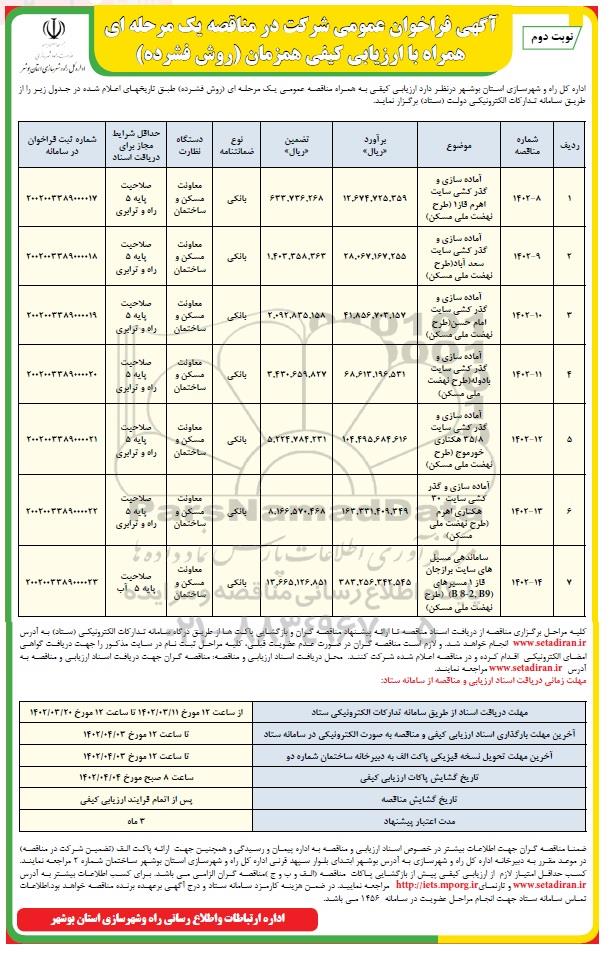 آگهی فراخوان عمومی شرکت در مناقصه یک مرحله ای
همراه با ارزیابی کیفی همزمان (روش فشرده)
نوبت دوم
اداره کل راه و شهرسازی استان بوشهر
اداره کل راه و شهرسازی استان بوشهر درنظر دارد ارزیابی کیفی به همراه مناقصه عمومی یک مرحله ای (روش فشرده) طبق تاریخهای اعلام شده در جدول زیر را از
طریق سامانه تدارکات الکترونیکی دولت (ستاد) برگزار نماید.
ردیف | شماره مناقصه | موضوع | برآورد «ریال» | تضمین «ریال» | نوع ضمانتنامه | دستگاه نظارت | حداقل شرایط مجاز برای دریافت اسناد | شماره ثبت فراخوان در سامانه
۱ | ۱۴۰۲-۸ | آماده سازی و گذر کشی سایت اهرم فاز۱ (طرح نهضت ملی مسکن) | ۱۲،۶۷۴،۷۲۵،۳۵۹ | ۶۳۳،۷۳۶،۲۶۸ | بانکی | معاونت مسکن و ساختمان | صلاحیت پایه ۵ راه و ترابری | ۲۰۰۲۰۰۳۳۸۹۰۰۰۰۱۷
۲ | ۱۴۰۲-۹ | آماده سازی و گذر کشی سایت سعد آباد(طرح نهضت ملی مسکن) | ۲۸،۰۶۷،۱۶۷،۲۵۵ | ۱،۴۰۳،۳۵۸،۳۶۳ | بانکی | معاونت مسکن و ساختمان | صلاحیت پایه ۵ راه و ترابری | ۲۰۰۲۰۰۳۳۸۹۰۰۰۰۱۸
۳ | ۱۴۰۲-۱۰ | آماده سازی و گذر کشی سایت امام حسن(طرح نهضت ملی مسکن) | ۴۱،۸۵۶،۷۰۳،۱۵۷ | ۲،۰۹۲،۸۳۵،۱۵۸ | بانکی | معاونت مسکن و ساختمان | صلاحیت پایه ۵ راه و ترابری | ۲۰۰۲۰۰۳۳۸۹۰۰۰۰۱۹
۴ | ۱۴۰۲-۱۱ | آماده سازی و گذر کشی سایت بادوله(طرح نهضت ملی مسکن) | ۶۸،۶۱۳،۱۹۶،۵۳۱ | ۳،۴۳۰،۶۵۹،۸۲۷ | بانکی | معاونت مسکن و ساختمان | صلاحیت پایه ۵ راه و ترابری | ۲۰۰۲۰۰۳۳۸۹۰۰۰۰۲۰
۵ | ۱۴۰۲-۱۲ | آماده سازی و گذر کشی سایت ۳۵/۸ هکتاری خورموج (طرح نهضت ملی مسکن) | ۱۰۴،۴۹۵،۶۸۴،۶۱۶ | ۵،۲۲۴،۷۸۴،۲۳۱ | بانکی | معاونت مسکن و ساختمان | صلاحیت پایه ۵ راه و ترابری | ۲۰۰۲۰۰۳۳۸۹۰۰۰۰۲۱
۶ | ۱۴۰۲-۱۳ | آماده سازی و گذر کشی سایت ۳۰ هکتاری اهرم (طرح نهضت ملی مسکن) | ۱۶۳،۳۳۱،۴۰۹،۳۴۹ | ۸،۱۶۶،۵۷۰،۴۶۸ | بانکی | معاونت مسکن و ساختمان | صلاحیت پایه ۵ راه و ترابری | ۲۰۰۲۰۰۳۳۸۹۰۰۰۰۲۲
۷ | ۱۴۰۲-۱۴ | ساماندهی مسیل های سایت برازجان فاز ۱ مسیرهای (B 8-2, B9) (طرح نهضت ملی مسکن) | ۳۸۳،۲۵۶،۳۴۲،۵۴۵ | ۱۳،۶۶۵،۱۲۶،۸۵۱ | بانکی | معاونت مسکن و ساختمان | صلاحیت پایه ۵ آب | ۲۰۰۲۰۰۳۳۸۹۰۰۰۰۲۳
کلیه مراحل برگزاری مناقصه از دریافت اسناد مناقصه تا ارائه پیشنهاد مناقصه گران و بازگشایی پاکت ها از طریق درگاه سامانه تدارکات الکترونیکی (ستاد) به آدرس
www.setadiran.ir انجام خواهد شد. و لازم است مناقصه گران در صورت عدم عضویت قبلی، کلیه مراحل ثبت نام در سایت مذکور را جهت دریافت گواهی
امضای الکترونیکی اقدام کرده و در مناقصه اعلام شده شرکت کنند. محل دریافت اسناد ارزیابی و مناقصه: مناقصه گران جهت دریافت اسناد ارزیابی و مناقصه به
آدرس www.setadiran.ir مراجعه نمایند.
مهلت زمانی دریافت اسناد ارزیابی و مناقصه از سامانه ستاد:
مهلت دریافت اسناد از طریق سامانه تدارکات الکترونیکی ستاد | از ساعت ۱۲ مورخ ۱۴۰۲/۰۳/۱۱ تا ساعت ۱۲ مورخ ۱۴۰۲/۰۳/۲۰
آخرین مهلت بارگذاری اسناد ارزیابی کیفی و مناقصه به صورت الکترونیکی در سامانه ستاد | تا ساعت ۱۲ مورخ ۱۴۰۲/۰۴/۰۳
آخرین مهلت تحویل نسخه فیزیکی پاکت الف به دبیرخانه ساختمان شماره دو | تا ساعت ۱۲ مورخ ۱۴۰۲/۰۴/۰۳
تاریخ گشایش پاکات ارزیابی کیفی | ساعت ۸ صبح مورخ ۱۴۰۲/۰۴/۰۴
تاریخ گشایش مناقصه | پس از اتمام فرایند ارزیابی کیفی
مدت اعتبار پیشنهاد | ۳ ماه
ضمنا مناقصه گران جهت اطلاعات بیشتر در خصوص اسناد ارزیابی و مناقصه به اداره پیمان و رسیدگی و همچنین جهت ارائه پاکت الف (تضمین شرکت در مناقصه)
در موعد مقرر به دبیرخانه اداره کل راه و شهرسازی به آدرس بوشهر ابتدای بلوار سپهبد قرنی اداره کل راه و شهرسازی استان بوشهر ساختمان شماره ۲ مراجعه نمایند.
کسب حداقل امتیاز لازم از ارزیابی کیفی پیش از بازگشایی پاکات مناقصه (الف و ب و ج )مناقصه گران الزامی می باشد. برای کسب اطلاعات بیشتر به آدرس
www.setadiran.ir و تارنمای http://iets.mporg.ir مراجعه نمایید. در ضمن هزینه کارمزد سامانه ستاد و درج آگهی برعهده برنده مناقصه خواهد بود.اطلاعات
تماس سامانه ستاد جهت انجام مراحل عضویت در سامانه ۱۴۵۶ می باشد.
اداره ارتباطات واطلاع رسانی راه وشهرسازی استان بوشهر